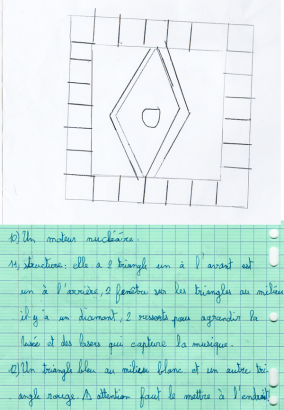 10) Un moteur nucléaire.
11) structure: elle a 2 triangle un à l'avant est
un à l'arrière, 2 fenêtre sur les triangles au milieu
il y a un diamant, 2 ressorts pour agrandir la
fusée et des lasers qui capture la musique.
12) Un triangle bleu au milieu blanc et un autre tri-
angle rouge. Δ attention faut le mettre à l'endroit